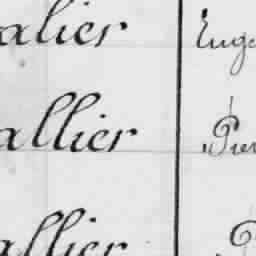 alier Euge
allier Pier
allier P